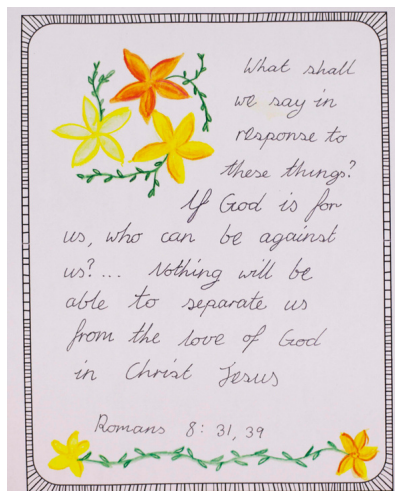 What shall
we say in
response to
these things?
If God is for
us, who can be against
us?... Nothing will be
able to separate us
from the love of God
in Christ Jesus
Romans 8: 31, 39